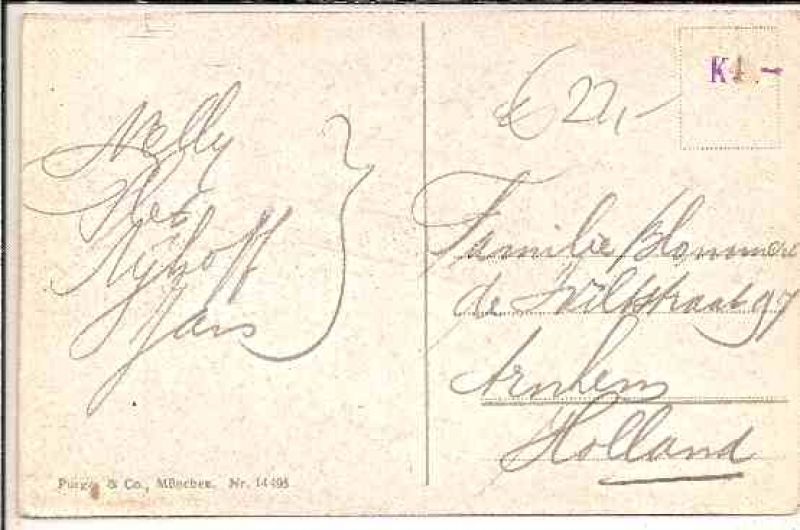 Nelly
Nijhoff
Hans
€ 22,-
K4.-
Familie Blommers
de Wiltstraat 97
Arnhem
Holland
Purger & Co., München. Nr. 14495